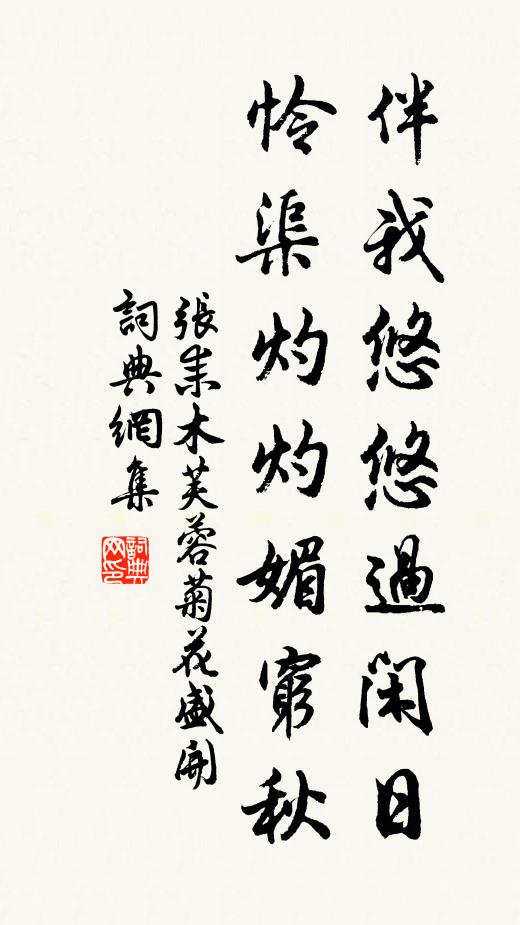 伴我悠悠過閑日
憐渠灼灼媚窮秋
張耒木芙蓉菊花盛開
詞典網集
詞典網印